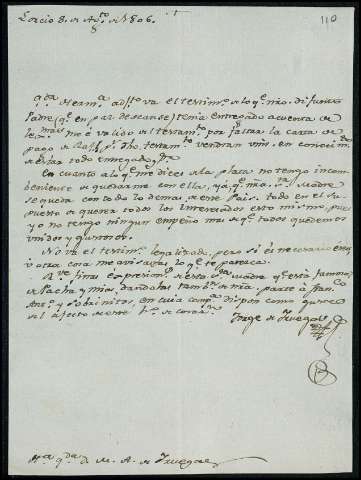 110
Lorcio 8 de Ag.to de 1806.
q.da Herm.a adj.to va el testim.o de lo q.e nro. difunto
Padre (q.e en paz descanse) tenia entregado a cuenta de
me é valido del testam.to por faltar la carta de
pago de dho. testam.to vendran vms. en conocim.to
de estar todo entregado
En cuanto a lo q.e me dices de la plata no tengo incom-
beniente de quedarme con ella, ya q.e nra. Madre
se queda con todo lo demas de ese Pais, todo en el su-
puesto de querer todos los Interesados esto mismo, pues
yo no tengo ningun empeño mas q.e todos quedemos
unidos y gustosos.
No va el testim.o legalizado, pero si es necesario eso
u otra cosa me avisarás lo q.e te parezca.
finas expresion.s de esta Madre q.e está famosa
de Pacha y mias, dandolas tamb.n de nra. parte à Fran.co
Ant.o y Sobrinitos, en cuia comp.a dispon como gustes
del afecto de este h.o de corazon
Jorge de Iruegas
q.da D. M. A. de Iruegas